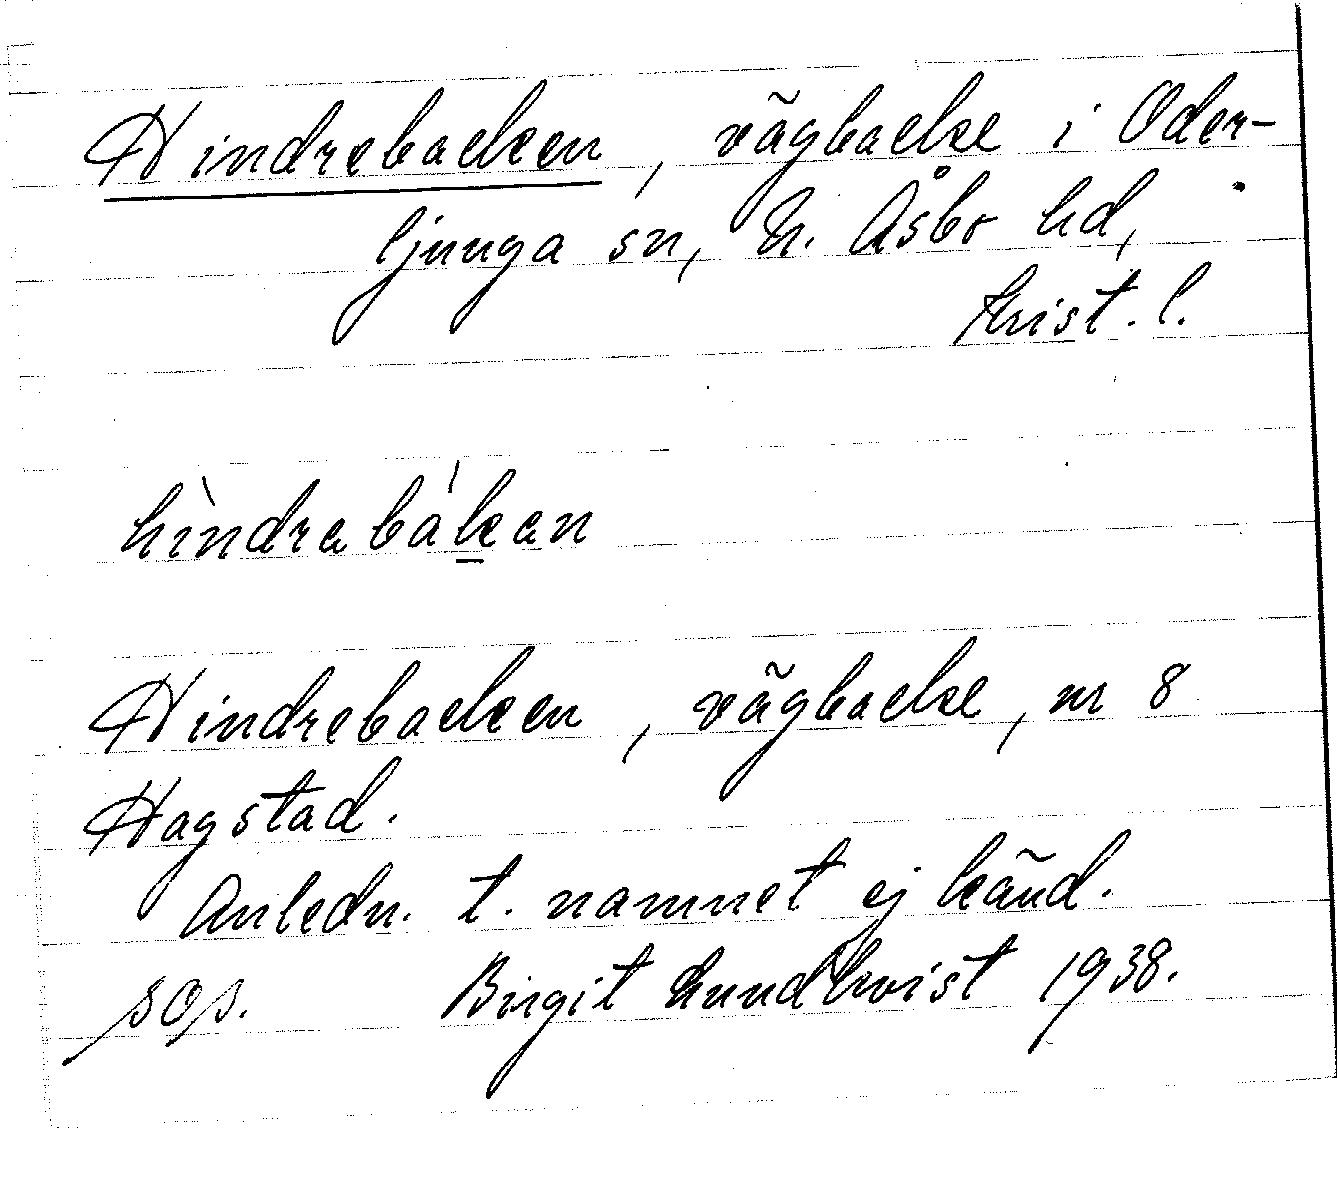 Hindrebacken, vägbacke i Oder-
ljunga sn, N. Åsbo hd,
Krist. l.
hìndrabákan
Hindrebacken, vägbacke, nr 8
Hagstad.
Anledn. t. namnet ej känd.
SOS. Birgit Lundkvist 1938.